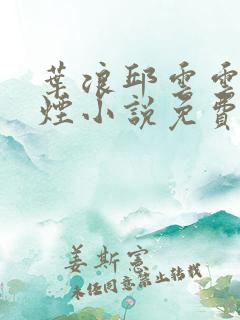 葉浪邱雲雲
煙小說免費
姜斯憲
未經同意禁止轉載